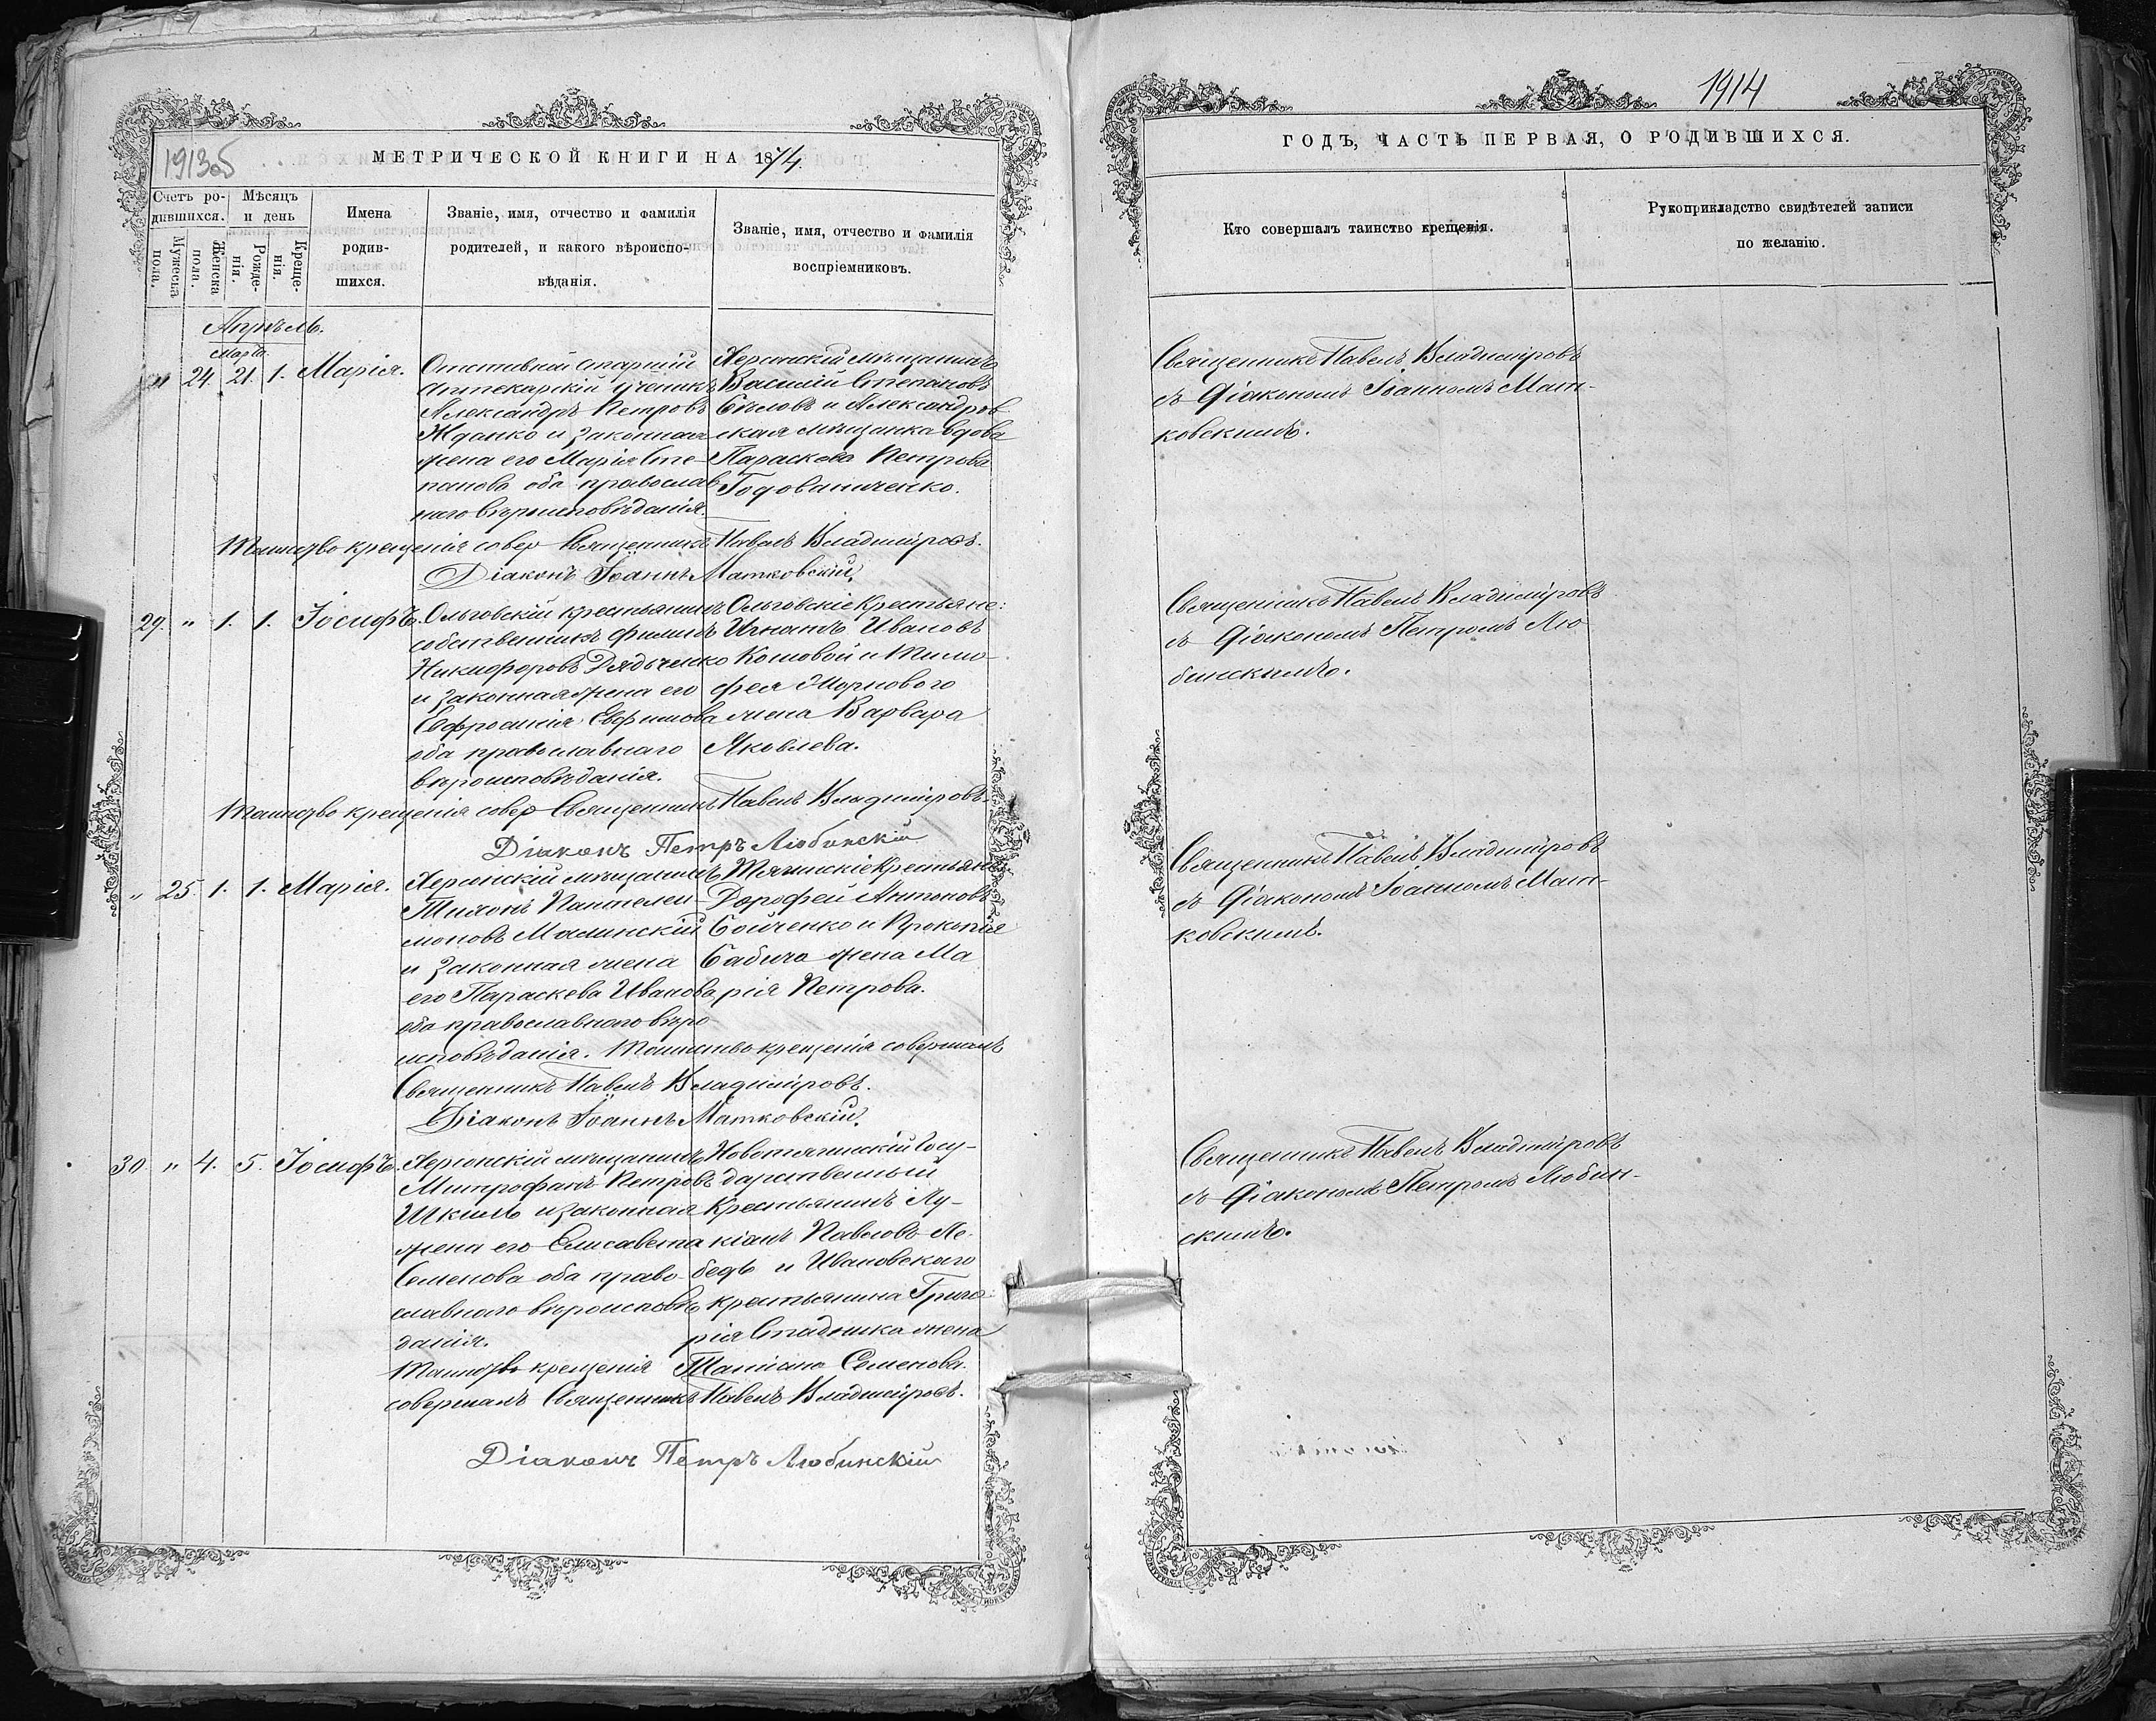 1913об
МЕТРИЧЕСКОЙ КНИГИ НА 1874.
Счетъ родившихся.
Мѣсяцъ и день
Имена родившихся.
Званіе, имя, отчество и фамилія родителей, и какого вѣроисповѣданія.
Званіе, имя, отчество и фамилія воспріемниковъ.
Мужеска пола.
Женска пола.
Рожденія.
Крещенія.
Апрѣль.
Марта.
" 24. 21. 1. Марія.
Отставной старшій
аптекарскій ученикъ
Александръ Петровъ
Жданко и законная
жена его Марія Сте-
панова оба православ
наго вѣроисповѣданія.
Херсонскій мѣщанинъ
Василій Степановъ
Бѣловъ и Александров
ская мѣщанка вдова
Параскева Петрова
Таинство крещенія совер Священникъ Павелъ Владиміровъ.
Діаконъ Іоаннъ Матковскій.
29. " 1. 1. Іосифъ.
Ольговскій крестьянинъ
собственникъ Филипъ
Никифоровъ Дядьченко
и законная жена его
Евфросинія Евфимова
оба православнаго
вѣроисповѣданія.
Ольговскіе крестьяне:
Игнатъ Ивановъ
Кошовой и Тимо-
фея
жена Варвара
Яковлева.
Таинство крещенія совер Священникъ Павелъ Владиміровъ.
Діаконъ Петръ Любинскій
" 25. 1. 1. Марія.
Херсонскій мѣщанинъ
Тихонъ Пантелеи-
моновъ Малинскій
и законная жена
его Параскева Иванова
оба православнаго вѣро
исповѣданія. Таинство крещенія совершалъ
Тягинскіе крестьяне
Дорофей Антоновъ
Бойченко и Прокопія
Бабича жена Ма
рія Петрова.
Священникъ Павелъ Владиміровъ.
Діаконъ Іоаннъ Матковскій.
30 " 4. 5. Іосифъ.
Херсонскій мѣщанинъ
Митрофанъ Петровъ
Шкиль и законная
жена его Елисавета
Семенова оба право-
славнаго вѣроисповѣ
данія.
Новотягинскій Госу-
дарственный
крестьянинъ Лу-
кіанъ Павловъ Ле-
бедь и Ивановскаго
крестьянина Григо-
рія Стадника жена
Татіана Семенова.
Таинство крещенія
совершалъ Священникъ Павелъ Владиміровъ.
Діаконъ Петръ Любинскій
1914
ГОДЪ, ЧАСТЬ ПЕРВАЯ, О РОДИВШИХСЯ.
Кто совершалъ таинство крещенія.
Рукоприкладство свидѣтелей записи
по желанію.
Священникъ Павелъ Владиміровъ
съ Діакономъ Іоанномъ Мат-
ковскимъ.
Священникъ Павелъ Владиміровъ
съ Діакономъ Петромъ Лю
бинскимъ.
Священникъ Павелъ Владиміровъ
съ Діакономъ Іоанномъ Мат-
ковскимъ.
Священникъ Павелъ Владиміровъ
съ Діакономъ Петромъ Любин-
скимъ.